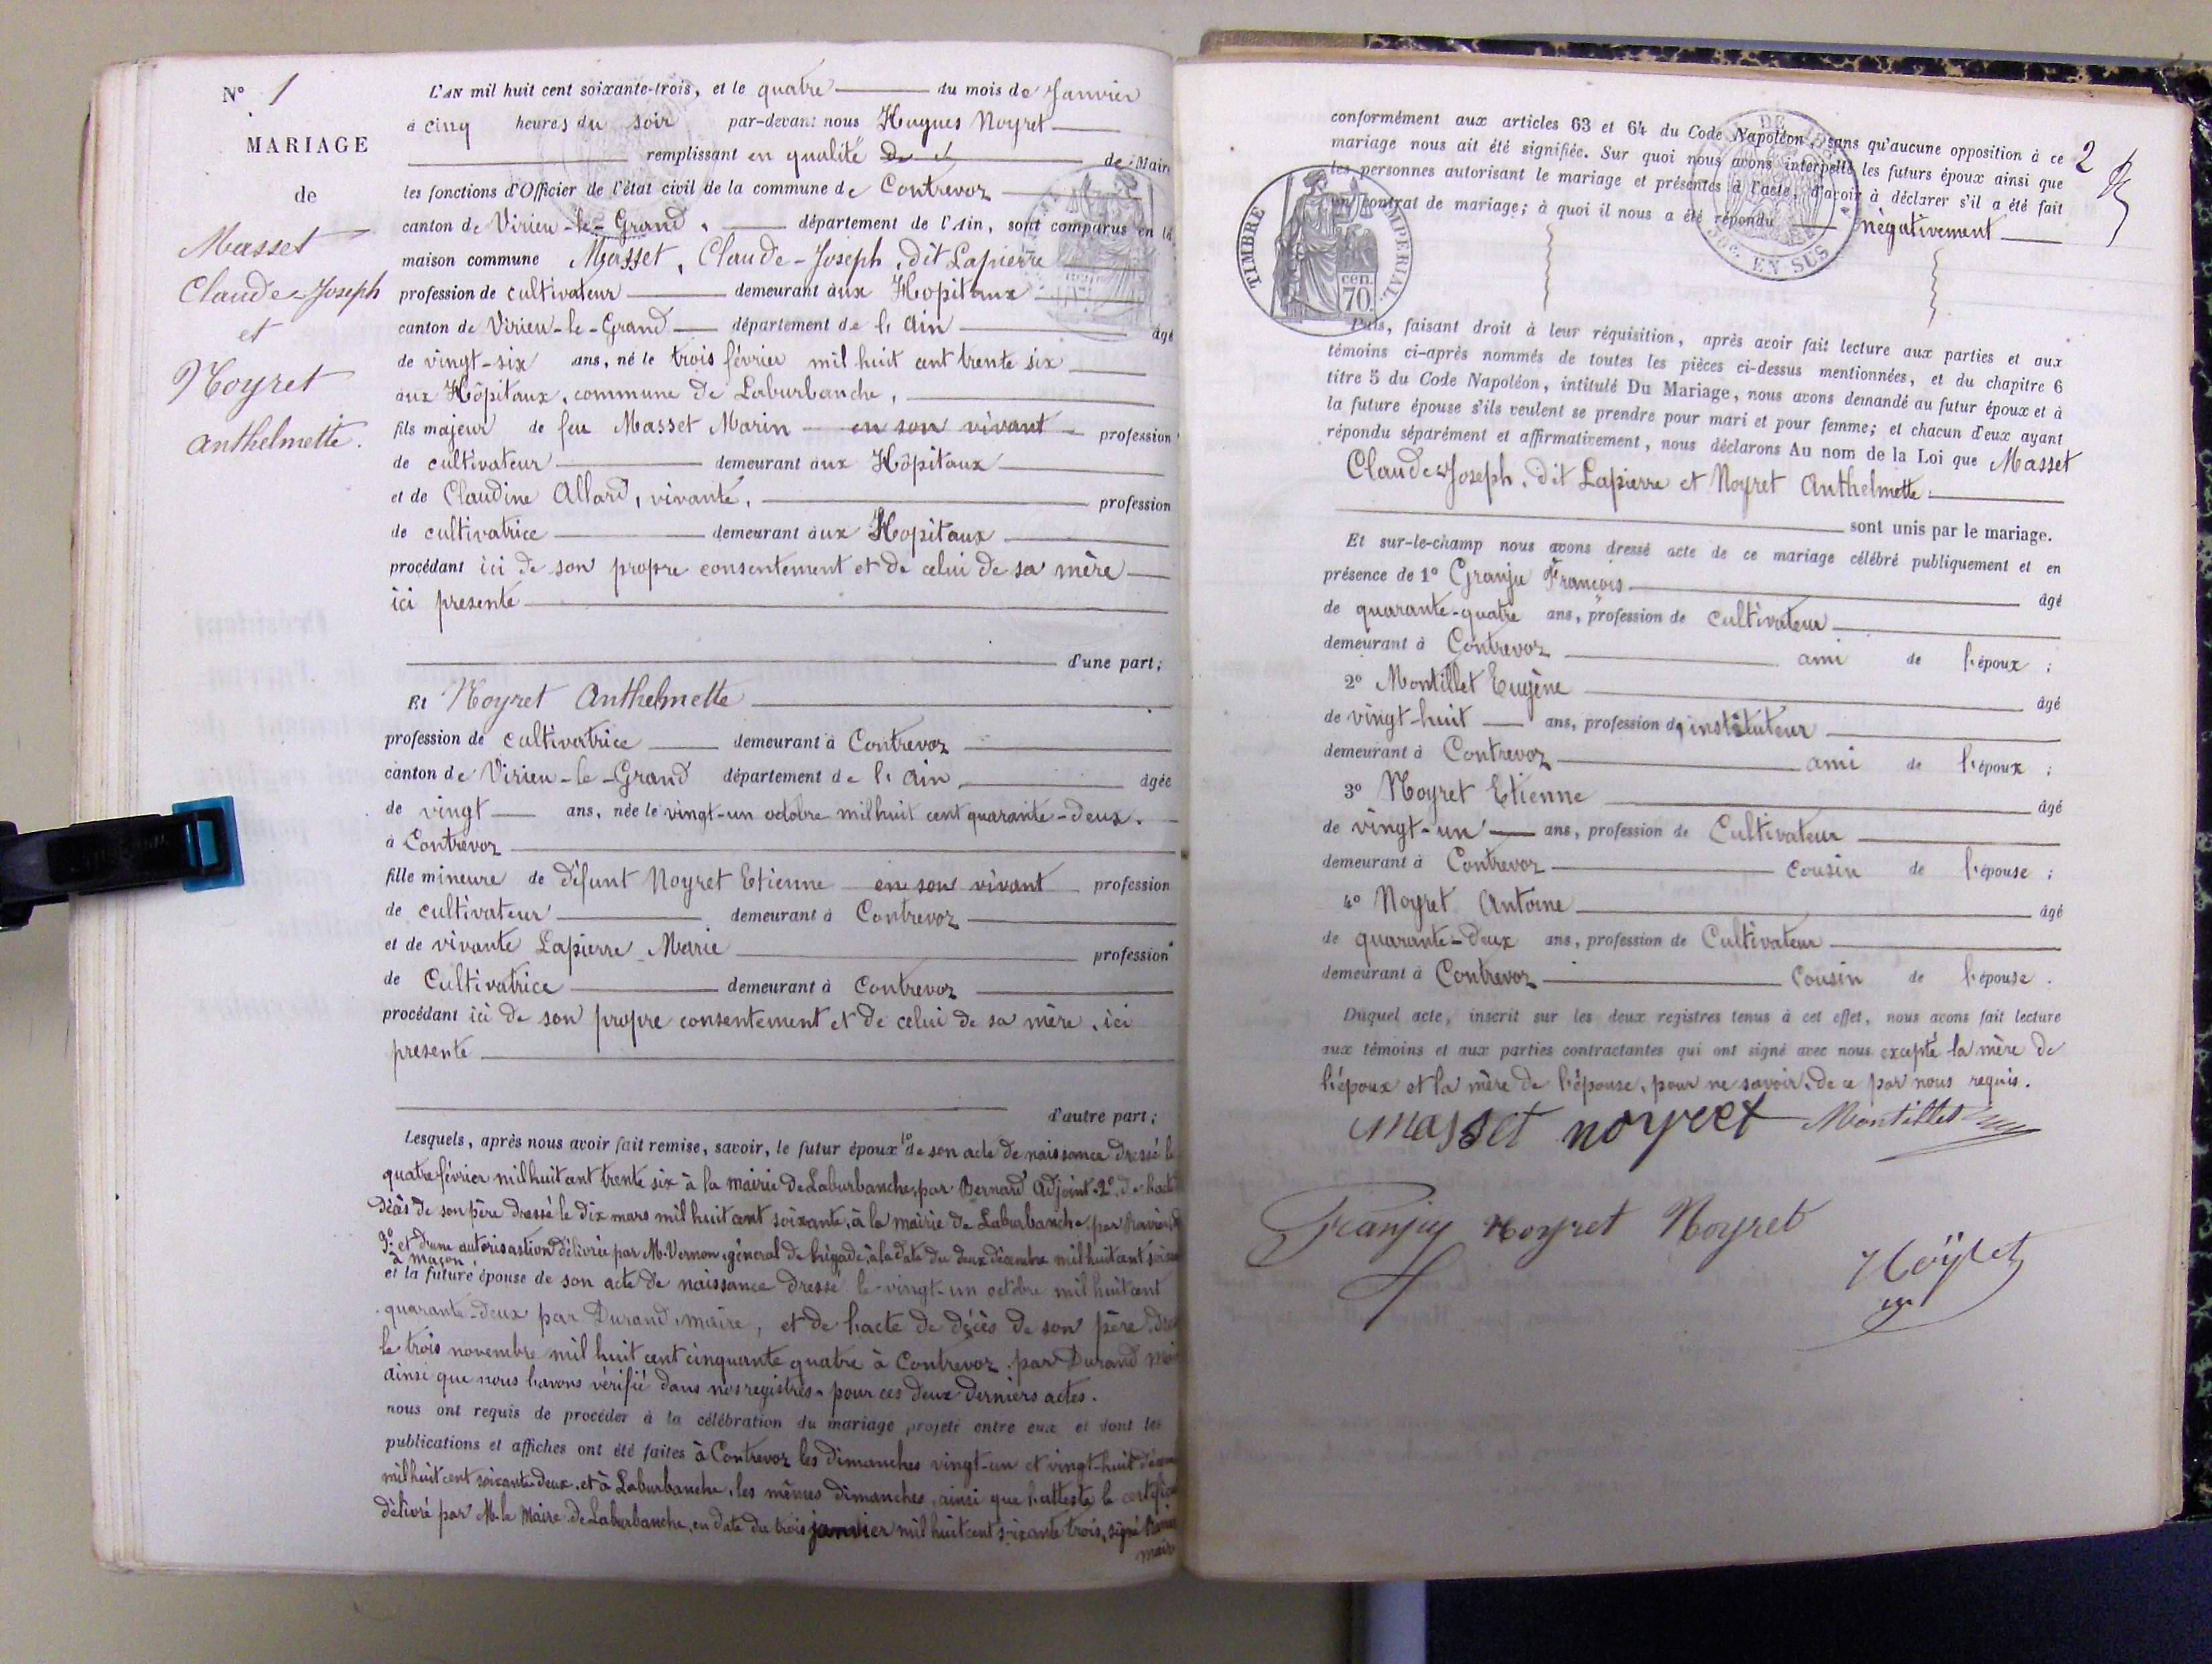 N° 1
MARIAGE
de
Masset
Claude-Joseph
et
Noyret
Anthelmette.
L'AN mil huit cent soixante-trois, et le quatre du mois de Janvier
à cinq heures du soir par-devant nous Hugues Noyret
remplissant en qualité de Maire
les fonctions d'Officier de l'état civil de la commune de Contrevoz
canton de Virieu-le-Grand, département de l'Ain, sont comparus en la
maison commune Masset, Claude-Joseph, dit Lapierre
profession de cultivateur demeurant aux Hopitaux
canton de Virieu-le-Grand département de l'Ain âgé
de vingt-six ans, né le trois février mil huit cent trente six
aux Hôpitaux, commune de Laburbanche,
fils majeur de feu Masset Marin en son vivant profession
de cultivateur demeurant aux Hôpitaux
et de Claudine Allard, vivante, profession
de cultivatrice demeurant aux Hopitaux
procédant ici de son propre consentement et de celui de sa mère
ici presente
d'une part;
Et Noyret Anthelmette
profession de cultivatrice demeurant à Contrevoz
canton de Virieu-le-Grand département de l'Ain âgée
de vingt ans, née le vingt-un octobre mil huit cent quarante-deux.
à Contrevoz
fille mineure de défunt Noyret Etienne en son vivant profession
de cultivateur demeurant à Contrevoz
et de vivante Lapierre Marie profession
de Cultivatrice demeurant à Contrevoz
procédant ici de son propre consentement et de celui de sa mère, ici
presente
d'autre part;
Lesquels, après nous avoir fait remise, savoir, le futur époux 1° de son acte de naissance dressé le
quatre février mil huit cent trente six à la mairie de Laburbanche, par Bernard Adjoint. 2° de l'acte
décès de son père dressé le dix mars mil huit cent soixante, à la mairie de Laburbanche, par
3° et d'une autorisastion délivrée par M. Vernon, général de brigade, à la date du deux décembre mil huit cent
à macon,
et la future épouse de son acte de naissance dressé le vingt-un octobre mil huit cent
quarante-deux par Durand, maire, et de l'acte de décès de son père
le trois novembre mil huit cent cinquante quatre à Contrevoz, par Durand
ainsi que nous l'avons vérifié dans nos registres pour ces deux derniers actes.
nous ont requis de procéder à la célébration du mariage projeté entre eux et dont les
publications et affiches ont été faites à Contrevoz les dimanches vingt-un et vingt-huit
mil huit cent soixante deux, et à Laburbanche, les mêmes dimanches, ainsi que l'atteste le
délivré par M. le Maire de Laburbanche, en date du trois janvier mil huit cent soixante trois, signé
maire
2
conformément aux articles 63 et 64 du Code Napoléon, sans qu'aucune opposition à ce
mariage nous ait été signifiée. Sur quoi nous avons interpellé les futurs époux ainsi que
les personnes autorisant le mariage et présentes à l'acte, d'avoir à déclarer s'il a été fait
un contrat de mariage; à quoi il nous a été répondu négativement
TIMBRE IMPERIAL
cen. 70
EN SUS
Puis, faisant droit à leur réquisition, après avoir fait lecture aux parties et aux
témoins ci-après nommés de toutes les pièces ci-dessus mentionnées, et du chapitre 6
titre 5 du Code Napoléon, intitulé Du Mariage, nous avons demandé au futur époux et à
la future épouse s'ils veulent se prendre pour mari et pour femme; et chacun d'eux ayant
répondu séparément et affirmativement, nous déclarons Au nom de la Loi que Masset
Claude Joseph, dit Lapierre et Noyret Anthelmette.
sont unis par le mariage.
Et sur-le-champ nous avons dressé acte de ce mariage célébré publiquement et en
présence de 1° Granju François âgé
de quarante-quatre ans, profession de cultivateur
demeurant à Contrevoz ami de l'époux;
2° Montillet Eugène âgé
de vingt-huit ans, profession d'instituteur
demeurant à Contrevoz ami de l'époux;
3° Noyret Etienne âgé
de vingt-un ans, profession de Cultivateur
demeurant à Contrevoz cousin de l'épouse;
4° Noyret Antoine âgé
de quarante-deux ans, profession de Cultivateur
demeurant à Contrevoz cousin de l'épouse.
Duquel acte, inscrit sur les deux registres tenus à cet effet, nous avons fait lecture
aux témoins et aux parties contractantes qui ont signé avec nous excepté la mère de
l'époux et la mère de l'épouse, pour ne savoir, de ce par nous requis.
Masset noyret Montillet
Noyret Noyret
Noÿret